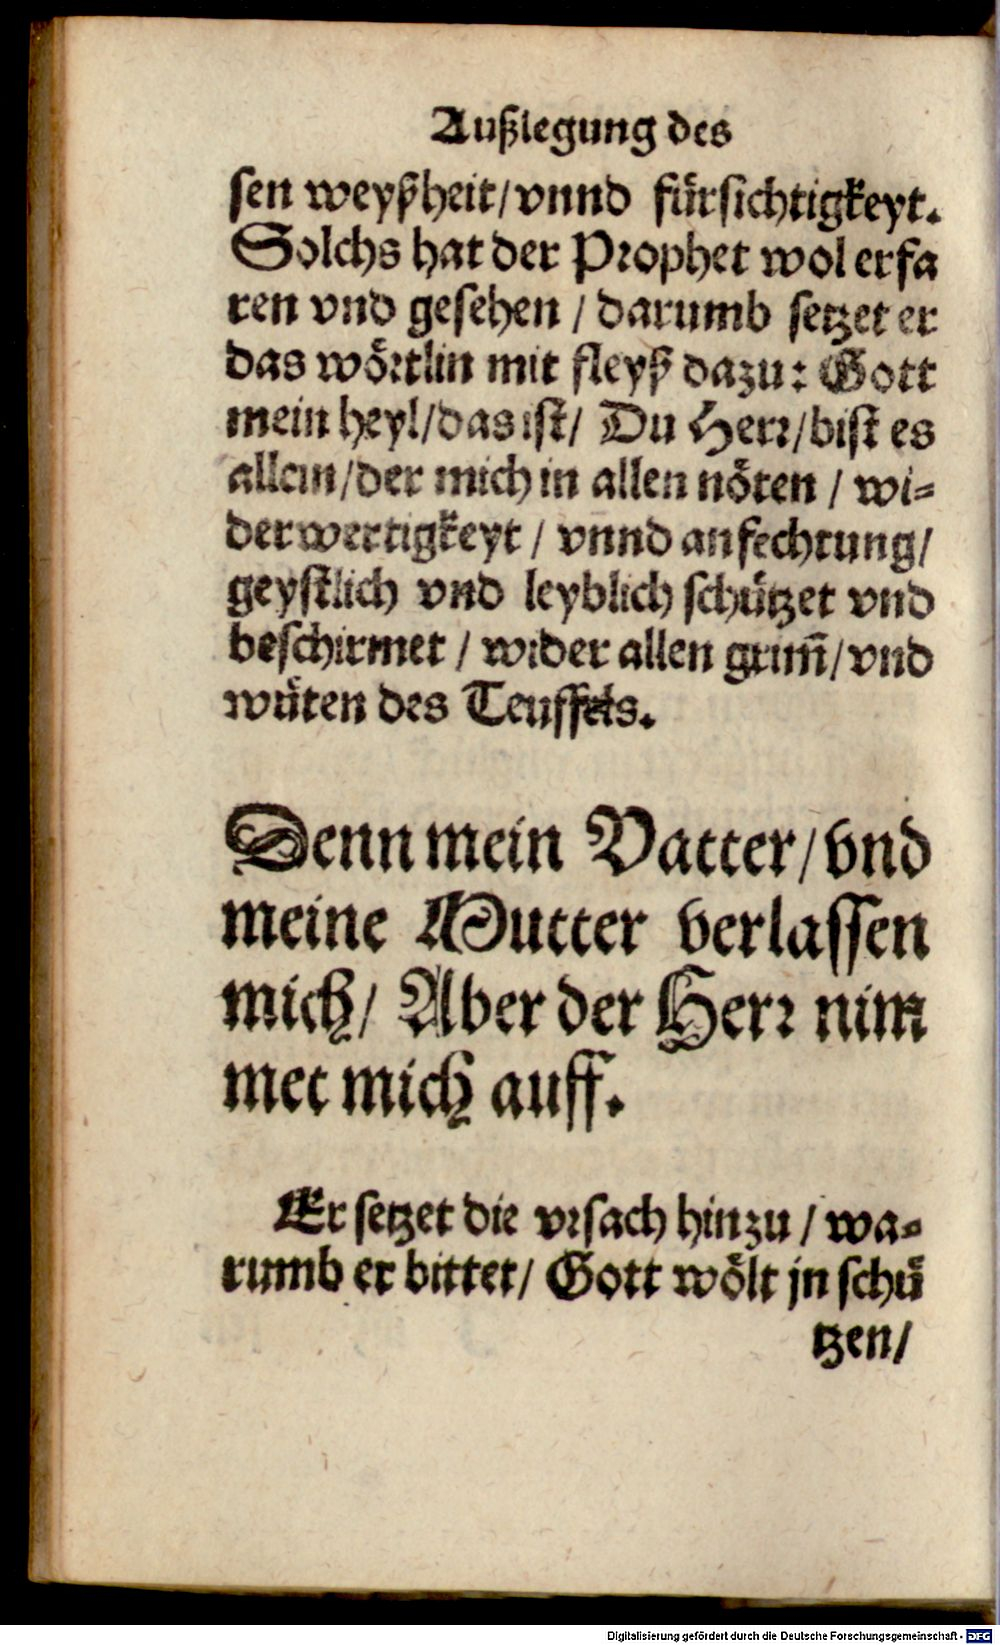 Außlegung des
sen weyßheit/vnnd fürsichtigkeyt.
Solchs hat der Prophet wol erfa
ren vnd gesehen / darumb setzet er
das wörtlin mit fleyß dazu: Gott
mein heyl/das ist/ Du Herr/bist es
allein/der mich in allen nöten / wi-
derwertigkeyt / vnnd anfechtung/
geystlich vnd leyblich schützet vnd
beschirmet / wider allen grim̃/vnd
wüten des Teuffels.
Denn mein Vatter/vnd
meine Mutter verlassen
mich/ Aber der Herr nim
met mich auff.
Er setzet die vrsach hinzu / wa-
rumb er bittet/ Gott wölt jn schü
tzen/
Digitalisierung gefördert durch die Deutsche Forschungsgemeinschaft - DFG